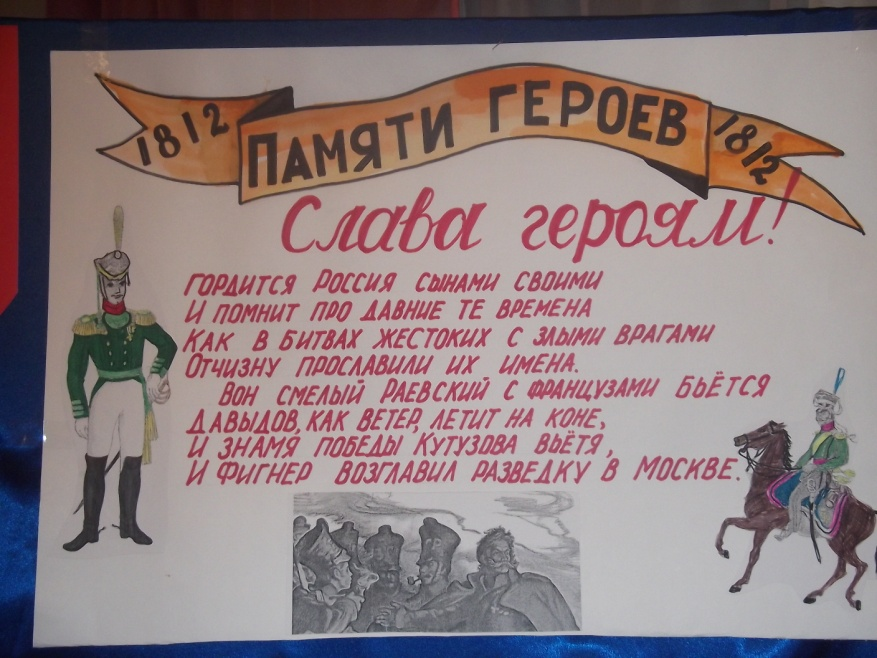 1812 ПАМЯТИ ГЕРОЕВ 1812
Слава героям!
ГОРДИТСЯ РОССИЯ СЫНАМИ СВОИМИ
И ПОМНИТ ПРО ДАВНИЕ ТЕ ВРЕМЕНА
КАК В БИТВАХ ЖЕСТОКИХ С ЗЛЫМИ ВРАГАМИ
ОТЧИЗНУ ПРОСЛАВИЛИ ИХ ИМЕНА.
ВОН СМЕЛЫЙ РАЕВСКИЙ С ФРАНЦУЗАМИ БЬЁТСЯ
ДАВЫДОВ, КАК ВЕТЕР, ЛЕТИТ НА КОНЕ,
И ЗНАМЯ ПОБЕДЫ КУТУЗОВА ВЬЁТЯ,
И ФИГНЕР ВОЗГЛАВИЛ РАЗВЕДКУ В МОСКВЕ.